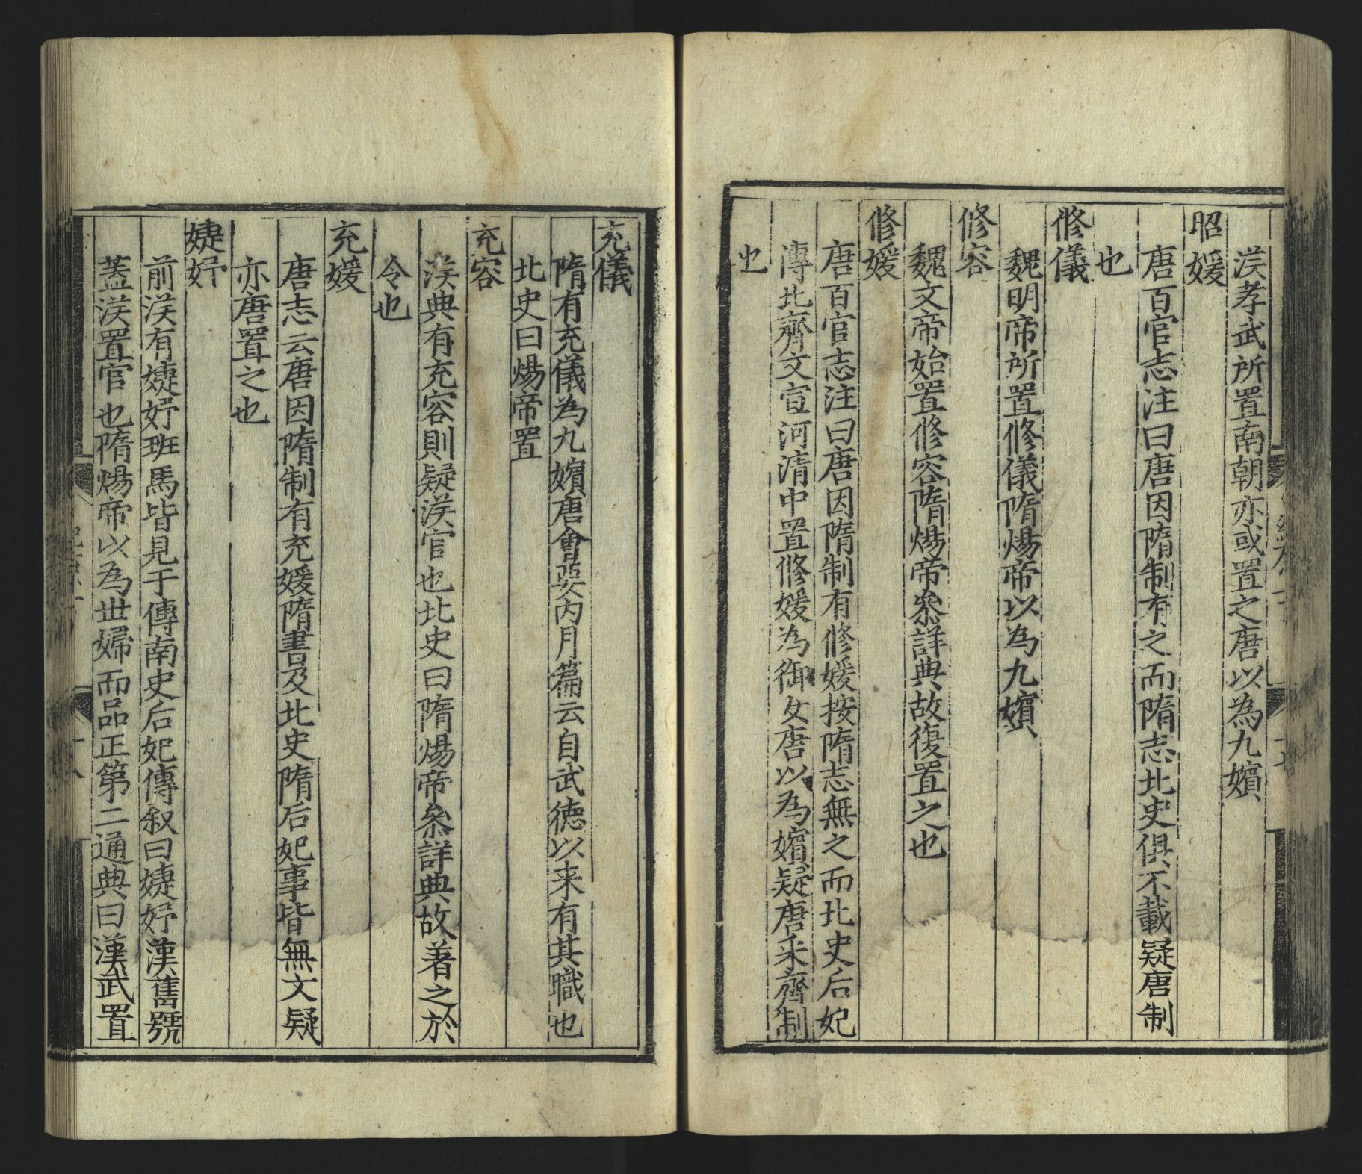 漢孝武所置南朝亦或置之唐以為九嬪
昭媛
唐百官志注曰唐因隋制有之而隋志北史俱不載疑唐制
也
修儀
魏明帝所置修儀隋煬帝以為九嬪
修容
魏文帝始置修容隋煬帝叅詳典故復置之也
修媛
唐百官志注曰唐因隋制有修媛按隋志無之而北史后妃
傳北齊文宣河清中置修媛為御女唐以為嬪疑唐采齊制
也
充儀
隋有充儀為九嬪唐會要内月篇云自武德以来有其職也
北史曰煬帝置
充容
漢典有充容則疑漢官也北史曰隋煬帝叅詳典故著之於
令也
充媛
唐志云唐因隋制有充媛隋書及北史隋后妃事皆無文疑
亦唐置之也
婕妤
前漢有婕妤班馬皆見于傳南史后妃傳叙曰婕妤漢舊號
蓋漢置官也隋煬帝以為世婦而品正第二通典曰漢武置